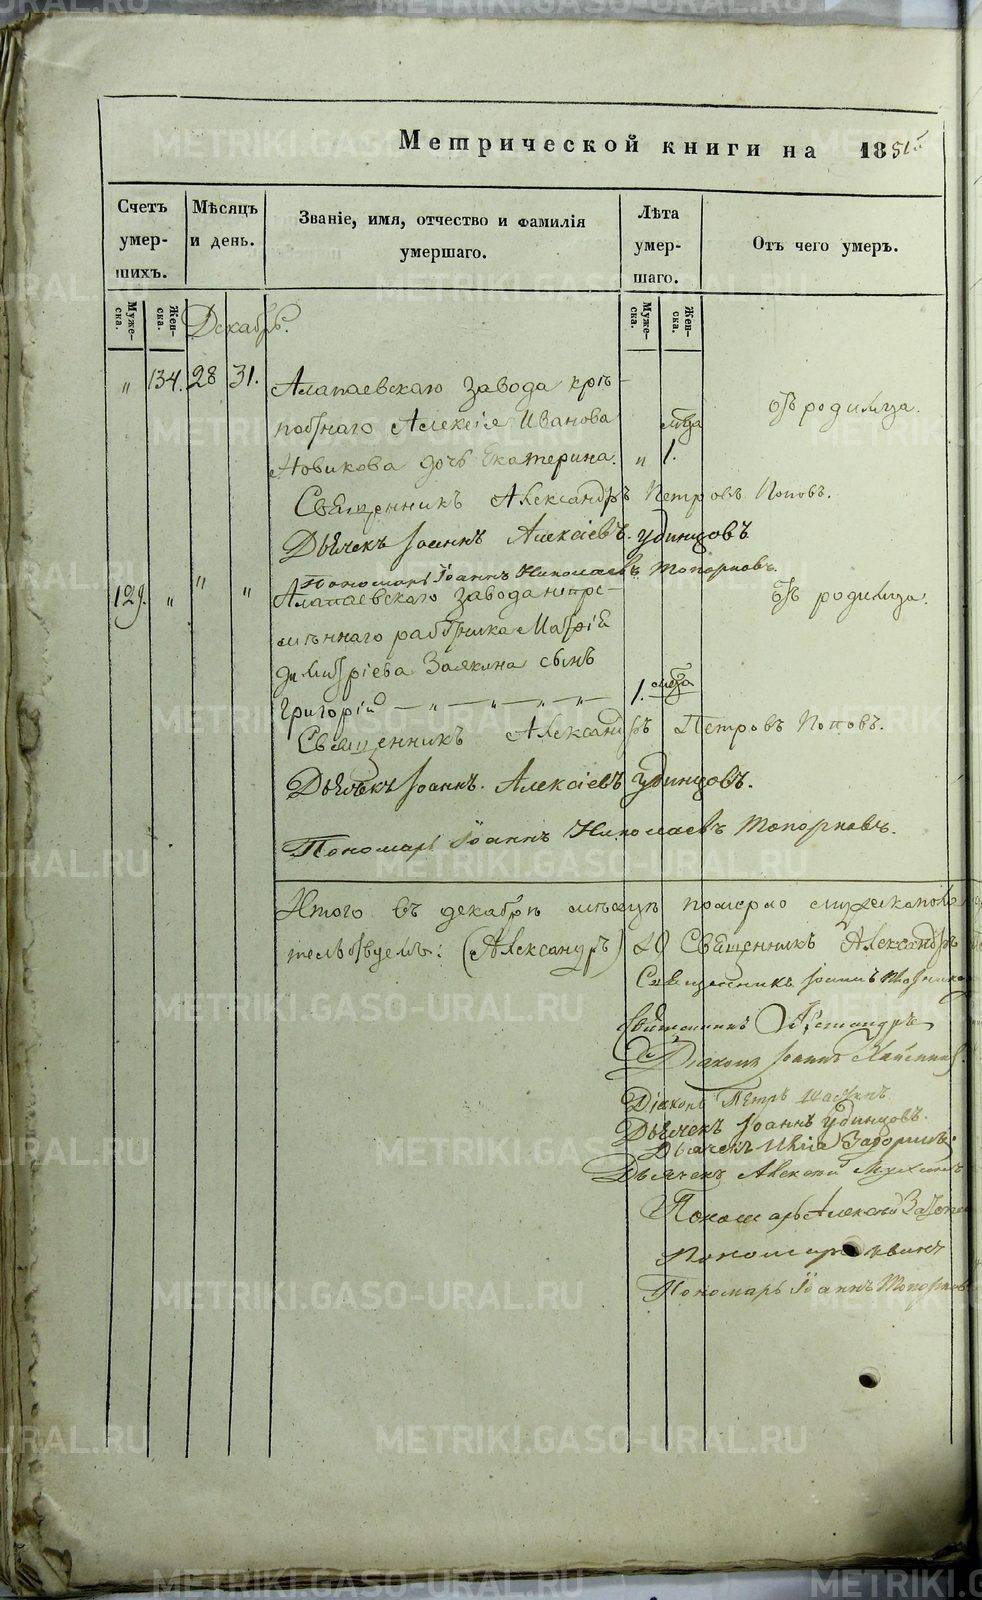 Метрической книги на 1851 г.
Счетъ умер-шихъ.
Мѣсяцъ и день.
Званіе, имя, отчество и фамилія умершаго.
Лѣта умер-шаго.
Отъ чего умеръ.
Муже-ска.
Жен-ска.
Муже-ска.
Жен-ска.
Декабрь.
" 134. 28 31. Алапаевскаго завода крѣ-
постнаго Алексѣя Иванова
Новикова дочь Екатерина. " 1. мца
отъ родимца.
Священникъ Александръ Петровъ Поповъ.
Дьячекъ Іоаннъ Алексіевъ Удинцовъ
Пономарь Іоаннъ Николаевъ Топорковъ.
129. " " " Алапаевскаго завода непре-
мѣннаго работника Матвѣя
Димитріева Заякина сынъ
Григорій — " — " — " — " — 1. мца
отъ родимца.
Священникъ Александръ Петровъ Поповъ.
Дьячекъ Іоаннъ Алексіевъ Удинцовъ.
Пономарь Іоаннъ Николаевъ Топорковъ.
Итого въ декабрѣ мѣсяцѣ померло мужеска пола
(Александръ) Священникъ Александръ
Священникъ Іоаннъ
Священникъ Александръ
Діаконъ Іоаннъ
Діаконъ Петръ
Дьячекъ Іоаннъ Удинцовъ.
Дьячекъ
Дьячекъ Алексѣй
Пономарь Алексѣй
Пономарь
Пономарь Іоаннъ Топорковъ
METRIKI.GASO-URAL.RU